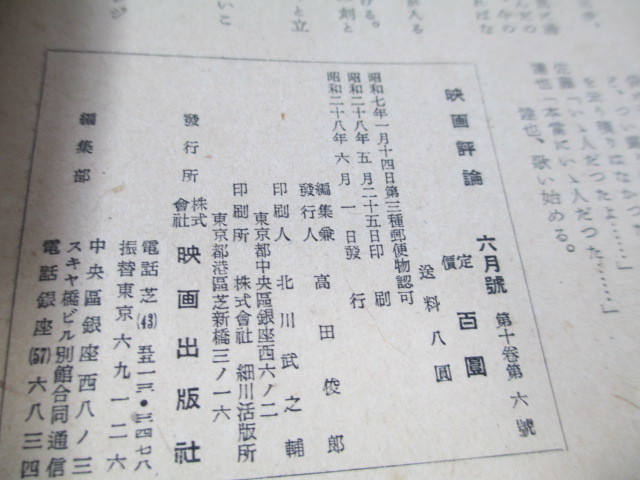 ど、つい
を足り獲りはなかつた
佐藤「いゝ人だつたよ……」
達也「本當にいゝ人だつた……」
達也、歌い始める。
映画評論 六月號 第十卷第六號
定價 百圓
送料 八圓
昭和七年一月十四日第三種郵便物認可
昭和二十八年五月二十五日印刷
昭和二十八年六月一日發行
編集兼發行人 高田俊郎
印刷人 北川武之輔
東京都中央區銀座西六ノ二
印刷所 株式會社 細川活版所
東京都港區芝新橋三ノ一六
發行所 株式會社 映画出版社
電話芝(43)五一三・三四七八
振替東京六九一二六
編集部 中央區銀座西八ノ三
スキヤ橋ビル別館合同通信
電話銀座(57)六八三四